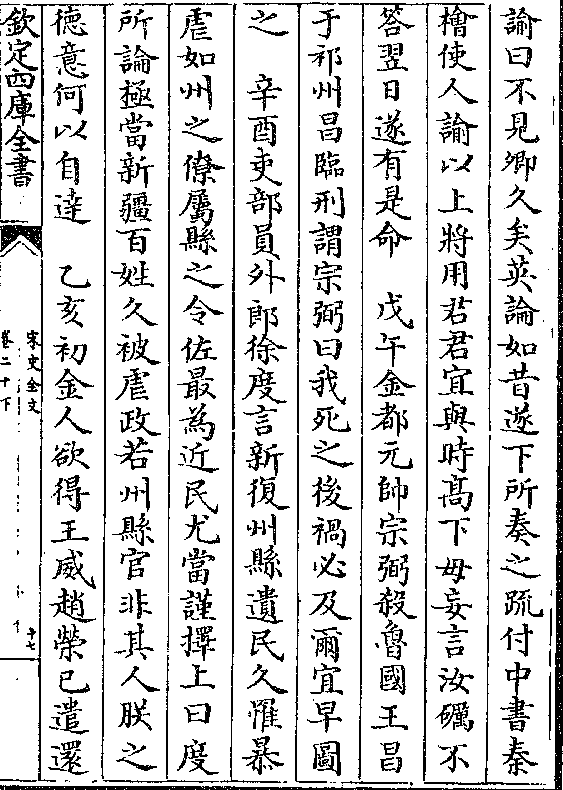 諭曰不見卿久矣英論如昔遂下所奏之疏付中書秦
檜使人諭以上將用君君宜與時髙下毋妄言汝礪不
答翌日遂有是命　戊午金都元帥宗弼殺魯國王昌
于祁州昌臨刑謂宗弼曰我死之後禍必及爾宜早圖
之　辛酉吏部員外郎徐度言新復州縣遺民久懼暴
虐如州之僚屬縣之令佐最為近民尤當謹擇上曰度
所論極當新疆百姓久被虐政若州縣官非其人朕之
德意何以自達　乙亥初金人欲得王威趙榮已遣還
欽定四庫全書
宋史全文
卷二十下
十七